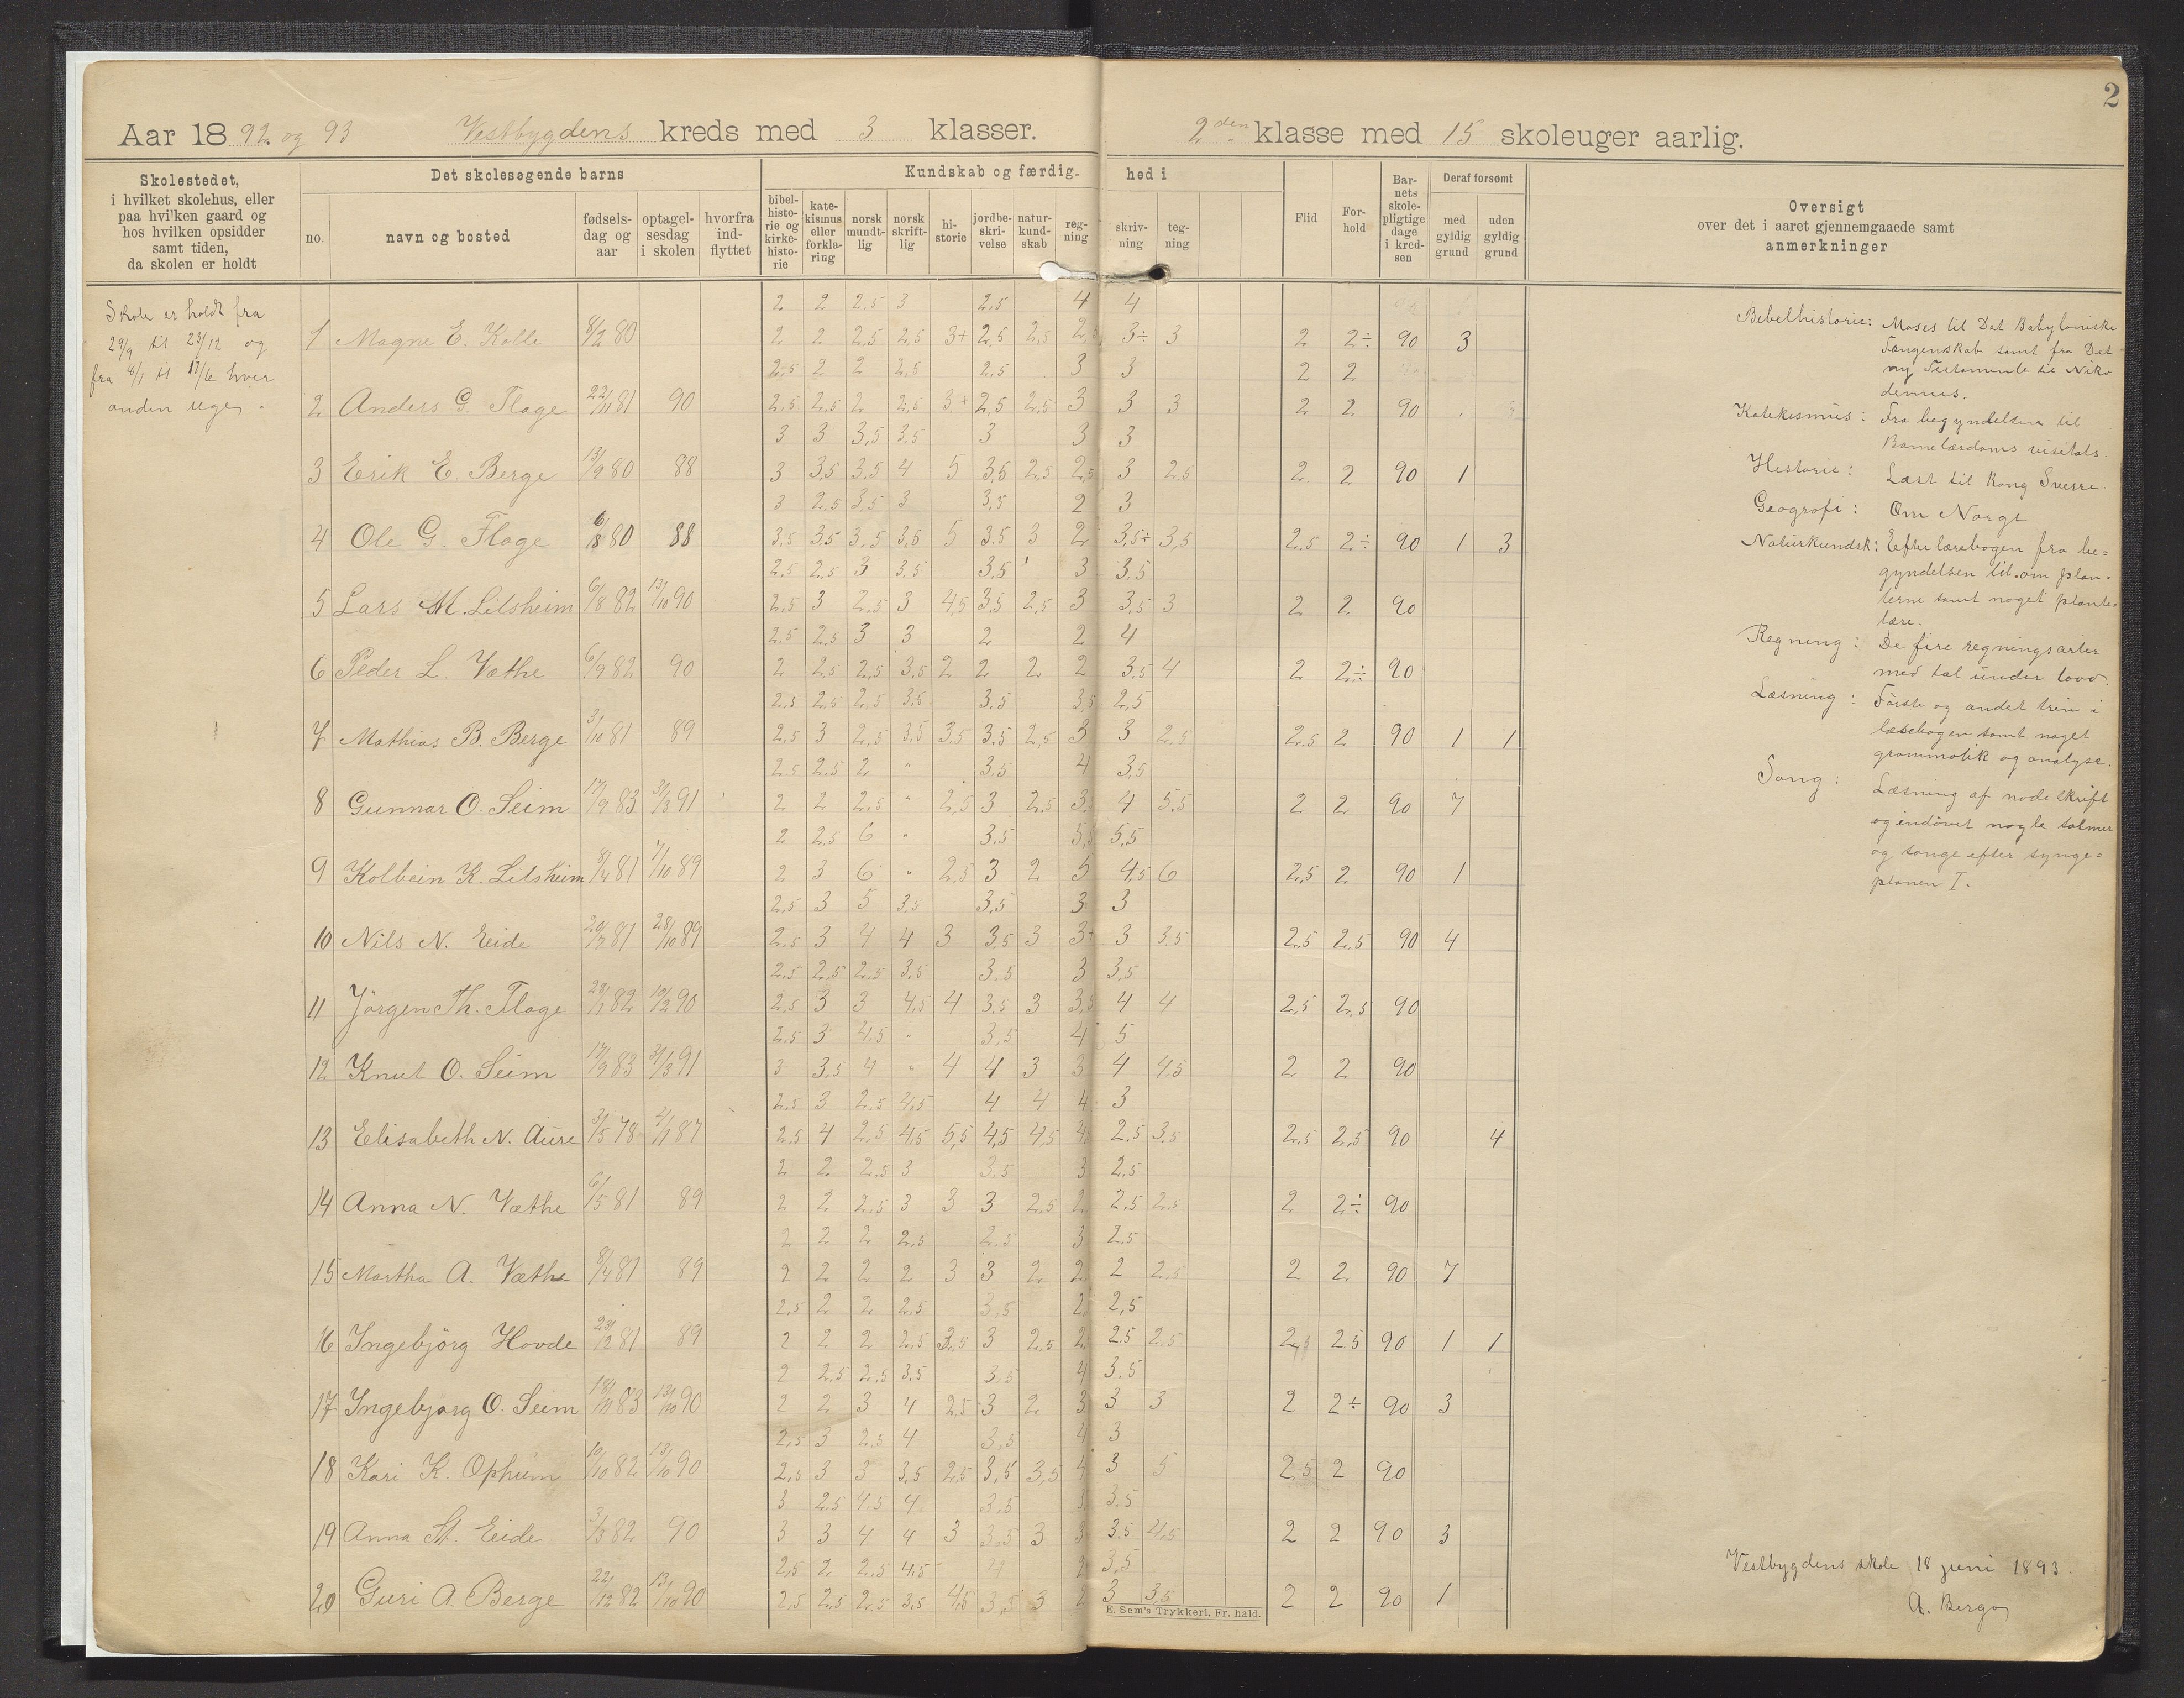 2
Aar 1892 og 93 Vestbygdens kreds med 3 klasser. 2den klasse med 15 skoleuger aarlig.
Skolestedet,
i hvilket skolehus, eller
paa hvilken gaard og
hos hvilken opsidder
samt tiden,
da skolen er holdt
Det skolesøgende barns
no.
navn og bosted
fødsels-
dag og
aar
optagel-
sesdag
i skolen
hvorfra
ind-
flyttet
Kundskab og færdig-
hed i
bibel-
histo-
rie og
kirke-
histo-
rie
kate-
kismus
eller
forkla-
ring
norsk
mundt-
lig
norsk
skrift-
lig
hi-
storie
jordbe-
skri-
velse
natur-
kund-
skab
reg-
ning
skriv-
ning
teg-
ning
Flid
For-
hold
Bar-
nets
skole-
pligtige
dage
i kred-
sen
Deraf forsømt
med
gyldig
grund
uden
gyldig
grund
Oversigt
over det i aaret gjennemgaaede samt
anmerkninger
Skole er holdt fra
29/9 til 23/12 og
fra 4/1 til 17/6 hver
anden uge.
2 2 2.5 3 2.5 4 4
1 Magne E. Kolle 8/2 80 2 2 2.5 2.5 3+ 2,5 2,5 2,5 3÷ 3 2 2÷ 90 3
2.5 2 2 2.5 2.5 3 3 2 2
2 Anders G. Flage 22/11 81 90 2.5 2.5 2 2.5 3+ 2,5 2.5 3 3 3 2 2 90
3 3 3,5 3.5 3 3 3
3 Erik E. Berge 13/9 80 88 3 3,5 3.5 4 5 3,5 2,5 2,5 3 2.5 2 2 90 1
3 2.5 3,5 3 3,5 2 3
4 Ole G. Flage 6/8 80 88 3.5 3.5 3.5 3,5 5 3.5 3 2 3,5÷ 3,5 2.5 2÷ 90 1 3
2.5 2.5 3 3.5 3.5 3 3.5
5 Lars M. Lilsheim 6/8 82 13/10 90 2.5 3 2.5 3 4,5 3,5 2,5 3 3,5 3 2 2 90
2.5 2.5 3 3 2 2 4
6 Peder L. Væthe 6/9 82 90 2 2.5 2.5 3.5 2 2 2 2 3.5 4 2 2÷ 90
2.5 2.5 2.5 3.5 3.5 3,5 2,5
7 Mathias B. Berge 3/10 81 89 2.5 3 2,5 3,5 3.5 3.5 2,5 3 3 2.5 2.5 2 90 1 1
2.5 2.5 2 " 3.5 4 3,5
8 Gunnar O. Seim 17/9 83 31/3 91 2 2 2,5 " 2,5 3 2.5 3. 4 5.5 2 2 90 7
2 2.5 6 " 3.5 5,5 5,5
9 Kolbein K. Lilsheim 8/4 81 7/10 89 2 3 6 " 2,5 3 2 5 4,5 6 2,5 2 90 1
2.5 3 5 3.5 3,5 3 3
10 Nils N. Eide 20/2 81 28/10 89 2.5 3 4 4 3 3.5 3 3÷ 3 3.5 2.5 2.5 90 4
2.5 2,5 2.5 3.5 3.5 3 3,5
11 Jörgen Th. Flage 28/1 82 19/2 90 2.5 3 3 4.5 4 3.5 3 3,5 4 4 2,5 2.5 90
2.5 3 4.5 " 3,5 4 5
12 Knut O. Seim 17/9 83 31/3 91 3 3.5 4 " 4 4 3 3 4 4.5 2 2 90
2.5 3 2.5 4.5 4 4 4 3
13 Elisabeth N. Aure 3/5 78 4/1 87 2.5 4 2.5 4.5 5,5 4,5 4,5 4. 2.5 3.5 2.5 2,5 90 4
2 2 2.5 3 3.5 3 2.5
14 Anna N. Væthe 6/5 81 89 2 2 2.5 3 3 3 2.5 2 2.5 2.5 2 2÷ 90
2 2 2 2.5 2.5 3 2.5
15 Martha A. Væthe 8/4 81 89 2 2 2 2 3 3 2 2 2 2.5 2 2 90 7
2.5 2 2 2.5 3,5 2, 2,5
16 Ingebjörg Hovde 23/12 81 89 2 2 2 2.5 3,5 3 2.5 2, 2.5 2.5 2,5 2.5 90 1 1
2 2.5 2.5 3.5 3.5 4 3.5
17 Ingebjørg O. Seim 18/11 83 13/10 90 2 2 3 4 2,5 3 2 3 3 3 2 2÷ 90 3
2,5 3 2.5 4 3.5 4 3
18 Kari K. Ophüm 10/10 82 13/10 90 2.5 3 3 3,5 2.5 3,5 3,5 4 3 5 2.5 2 90
3 2.5 4.5 4 3.5 3 3.5
19 Anna St. Eide 3/3 82 90 3 3 4 4 3 3.5 3 3 3.5 4,5 2 2 90 3
2.5 2 2.5 4.5 4 2 3,5
20 Guri A. Berge 22/12 82 13/10 90 2.5 2.5 2.5 3.5 4.5 3,5 3 2 3 3.5 2 2 90 1
E. Sem's Trykkeri, Fr. hald.
Bebelhistorie: Moses til Det Babyloniske
Fangenskab samt fra Det
ny Testamente til Niko
demus.
Katekismus: Fra begyndelsen til
Barnelærdoms visitats.
Historie: Læst til kong Sverre.
Geografi: Om Norge
Naturkundsk: Efter lærebogen fra be=
gyndelsen til om plan=
terne samt noget plante
lære.
Regning: De fire regningsarter
med tal under 1000.
Læsning: Förste og andet trin i
læsebogen samt noget
grammatik og analyse.
Sang: Læsning af nodeskrift
og indövet nogle salmer
og sange efter synge=
planen I.
Vestbygdens skole 18 juni 1893.
A. Berge